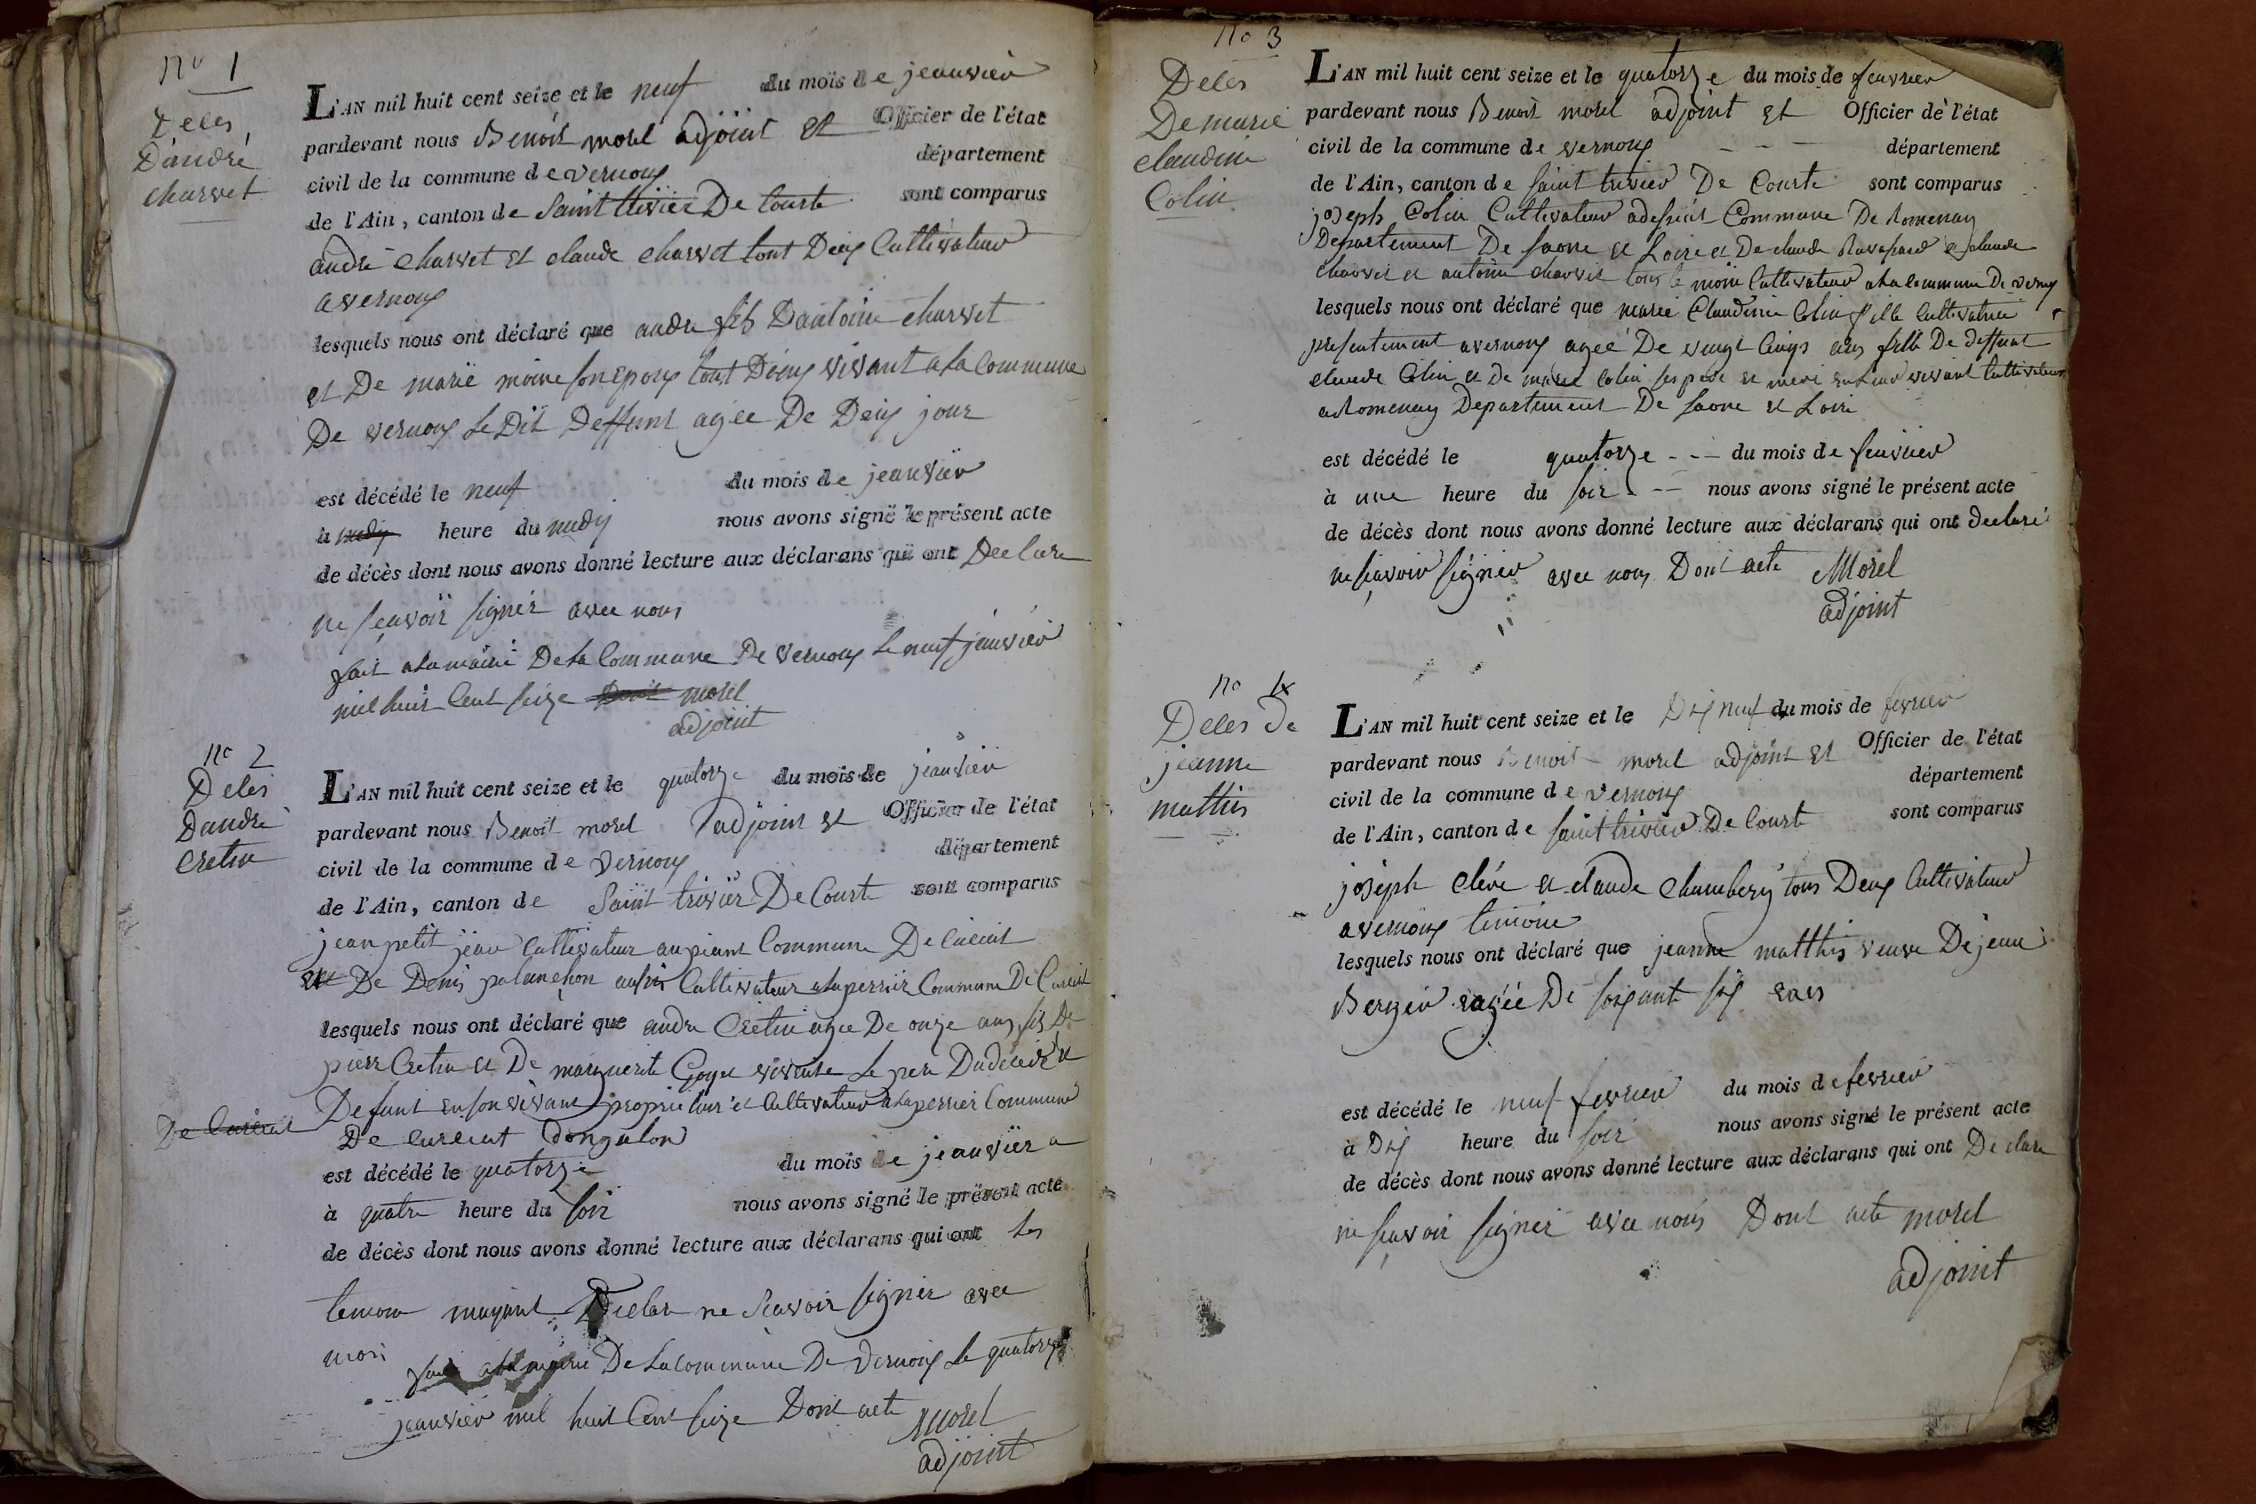 No 1
Deces
D'andré
charvet
L'AN mil huit cent seize et le neuf du mois de jeanvier
pardevant nous Benoit morel adjoint et Officier de l'état
civil de la commune de vernoux département
de l'Ain, canton de Saint trivier De Courte sont comparus
andré charvet et claude charvet tout Deux Cultivateur
a vernoux
lesquels nous ont déclaré que andre fils D'antoine charvet
et De marie moine son epoux tout Deux vivant a la Commune
De vernoux Le Dit Deffunt agée De Deux jour
est décédé le neuf du mois de jeanvier
à midy heure du midy nous avons signé le présent acte
de décès dont nous avons donné lecture aux déclarans qui ont Declare
ne sçavoir signer avec nous
fait a la mairie De la Commune De vernoux Le neuf jeanvier
mil huit Cent seize Dont morel
adjoint
No 2
Deces
D'andre
Cretin
L'AN mil huit cent seize et le quatorze du mois de jeanvier
pardevant nous Benoit morel adjoint et Officier de l'état
civil de la commune de vernoux département
de l'Ain, canton de Saint trivier De Courte sont comparus
jean petit jean Cultivateur au Commune De Curciat
et De Denis palanchon aussi Cultivateur a la perrier Commune De Curciat
lesquels nous ont déclaré que andre Cretin agee De onze ans fils De
pierre Cretin et De marguerite Goyet vivante Le pere Du décédé et
Defunt en son vivant proprietair et Cultivateur a la perrier Commune
De Curciat
De Curciat Dongalon
est décédé le quatorze du mois de jeanvier a
à quatre heure du soir nous avons signé le présent acte
de décès dont nous avons donné lecture aux déclarans qui ont les
temoin mayant Declare ne Scavoir signer avec
moi fait a la mairie De La Commune De vernoux Le quatorze
jeanvier mil huit Cent seize Dont acte Morel
adjoint
No 3
Deces
De marie
claudine
Colin
L'AN mil huit cent seize et le quatorze du mois de feuvrier
pardevant nous Benoit morel adjoint et Officier de l'état
civil de la commune de vernoux département
de l'Ain, canton de Saint trivier De Courte sont comparus
joseph Colin Cultivateur Commune De Romenay
Departement De Saone et Loire et De claude et claude
charvet et antoine charvet tous Cultivateur a la commune De vernoux
lesquels nous ont déclaré que marie Claudine Colin fille Cultivatrice
presentement a vernoux agée De vingt Cinq ans fille De deffunt
claude Colin et de marie Colin ses pere et mere en leur vivant Cultivateur
a Romenay Departement De Saone et Loire
est décédé le quatorze - - - du mois de feuvrier
à une heure du soir - - - nous avons signé le présent acte
de décès dont nous avons donné lecture aux déclarans qui ont declaré
ne sçavoir signer avec nous Dont acte Morel
adjoint
No 4
Deces de
jeanne
matthis
L'AN mil huit cent seize et le Dix neuf du mois de fevrier
pardevant nous Benoit morel adjoint et Officier de l'état
civil de la commune de vernoux département
de l'Ain, canton de saint trivier De Courte sont comparus
joseph clére et claude chambery tous Deux Cultivateur
a vernoux temoin
lesquels nous ont déclaré que jeanne matthis veuve De jean
Berger agée De soixante six ans
est décédé le neuf fevrier du mois de fevrier
à Dix heure du soir nous avons signé le présent acte
de décès dont nous avons donné lecture aux déclarans qui ont Declare
ne sçavoir signer avec nous Dont acte morel
adjoint